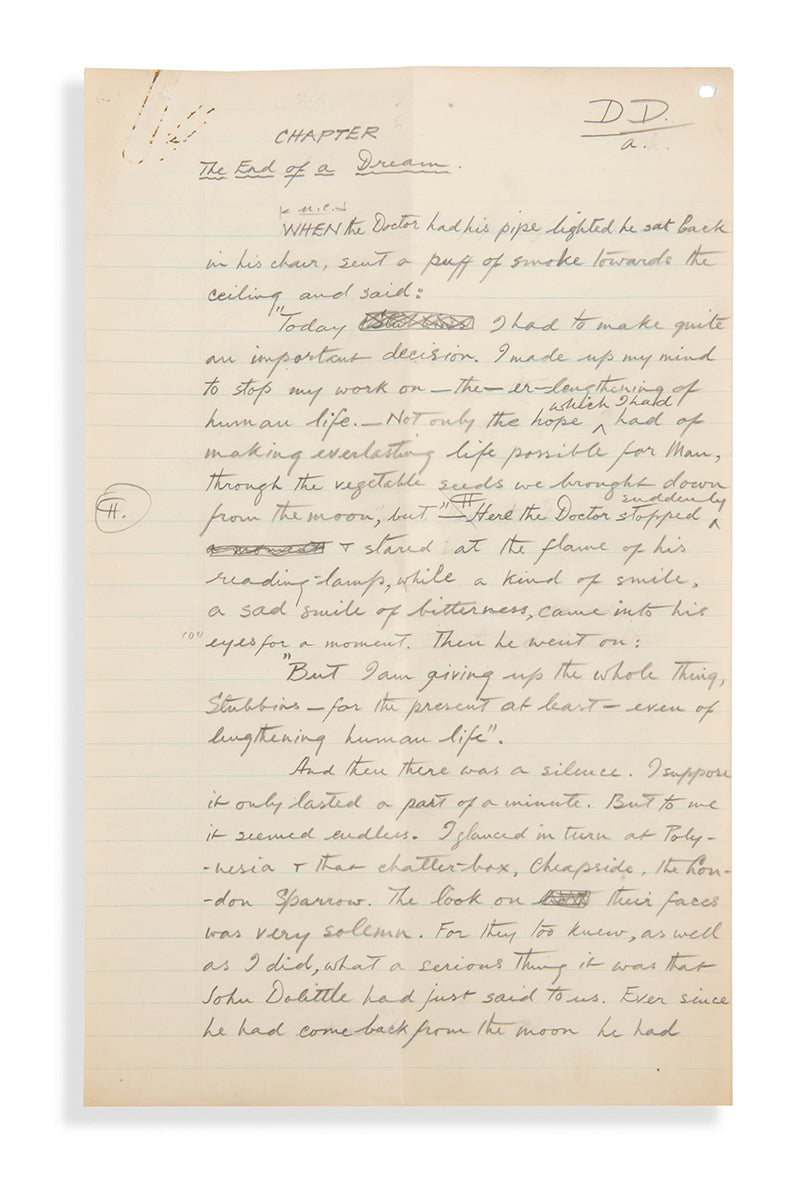 D D.
a.
CHAPTER
The End of a Dream.
u.c.
WHEN the Doctor had his pipe lighted he sat back
in his chair, sent a puff of smoke towards the
ceiling and said:
"Today I had to make quite
an important decision. I made up my mind
to stop my work on — the — er — lengthening of
which I had
human life. — Not only the hope ^ had of
making everlasting life possible for Man,
through the vegetable seeds we brought down
suddenly
¶. from the moon, but" — ¶ Here the Doctor stopped ^
a moment + stared at the flame of his
reading-lamp, while a kind of smile,
a sad smile of bitterness, came into his
eyes for a moment. Then he went on:
"But I am giving up the whole thing,
Stubbins — for the present at least — even of
lengthening human life".
And then there was a silence. I suppose
it only lasted a part of a minute. But to me
it seemed endless. I glanced in turn at Poly-
-nesia + that chatter-box, Cheapside, the Lon-
-don Sparrow. The look on their faces
was very solemn. For they too knew, as well
as I did, what a serious thing it was that
John Dolittle had just said to us. Ever since
he had come back from the moon he had